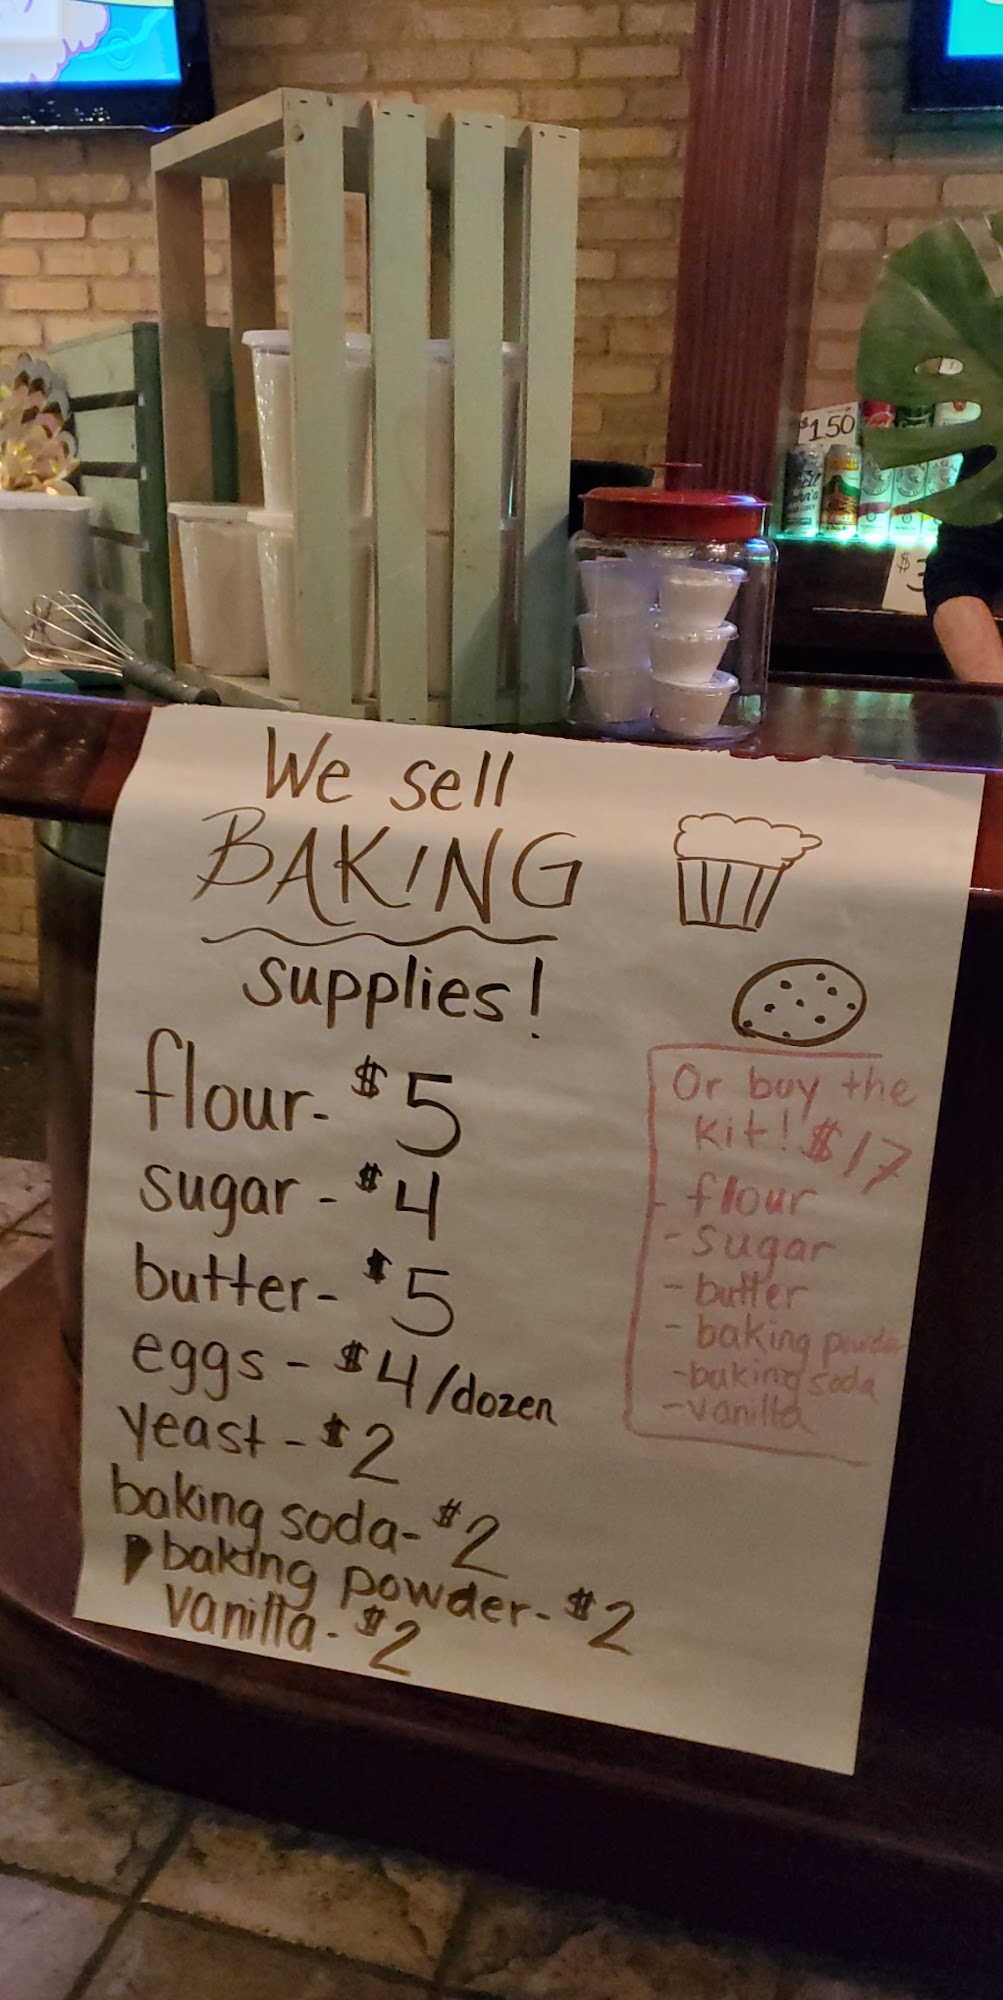 $1.50
$3
We sell
BAKING
supplies!
flour- $5
sugar - $4
butter- $5
eggs - $4/dozen
yeast - $2
baking soda- $2
baking powder- $2
vanilla- $2
Or buy the
kit! $17
- flour
- sugar
- butter
- baking powder
- baking soda
- vanilla